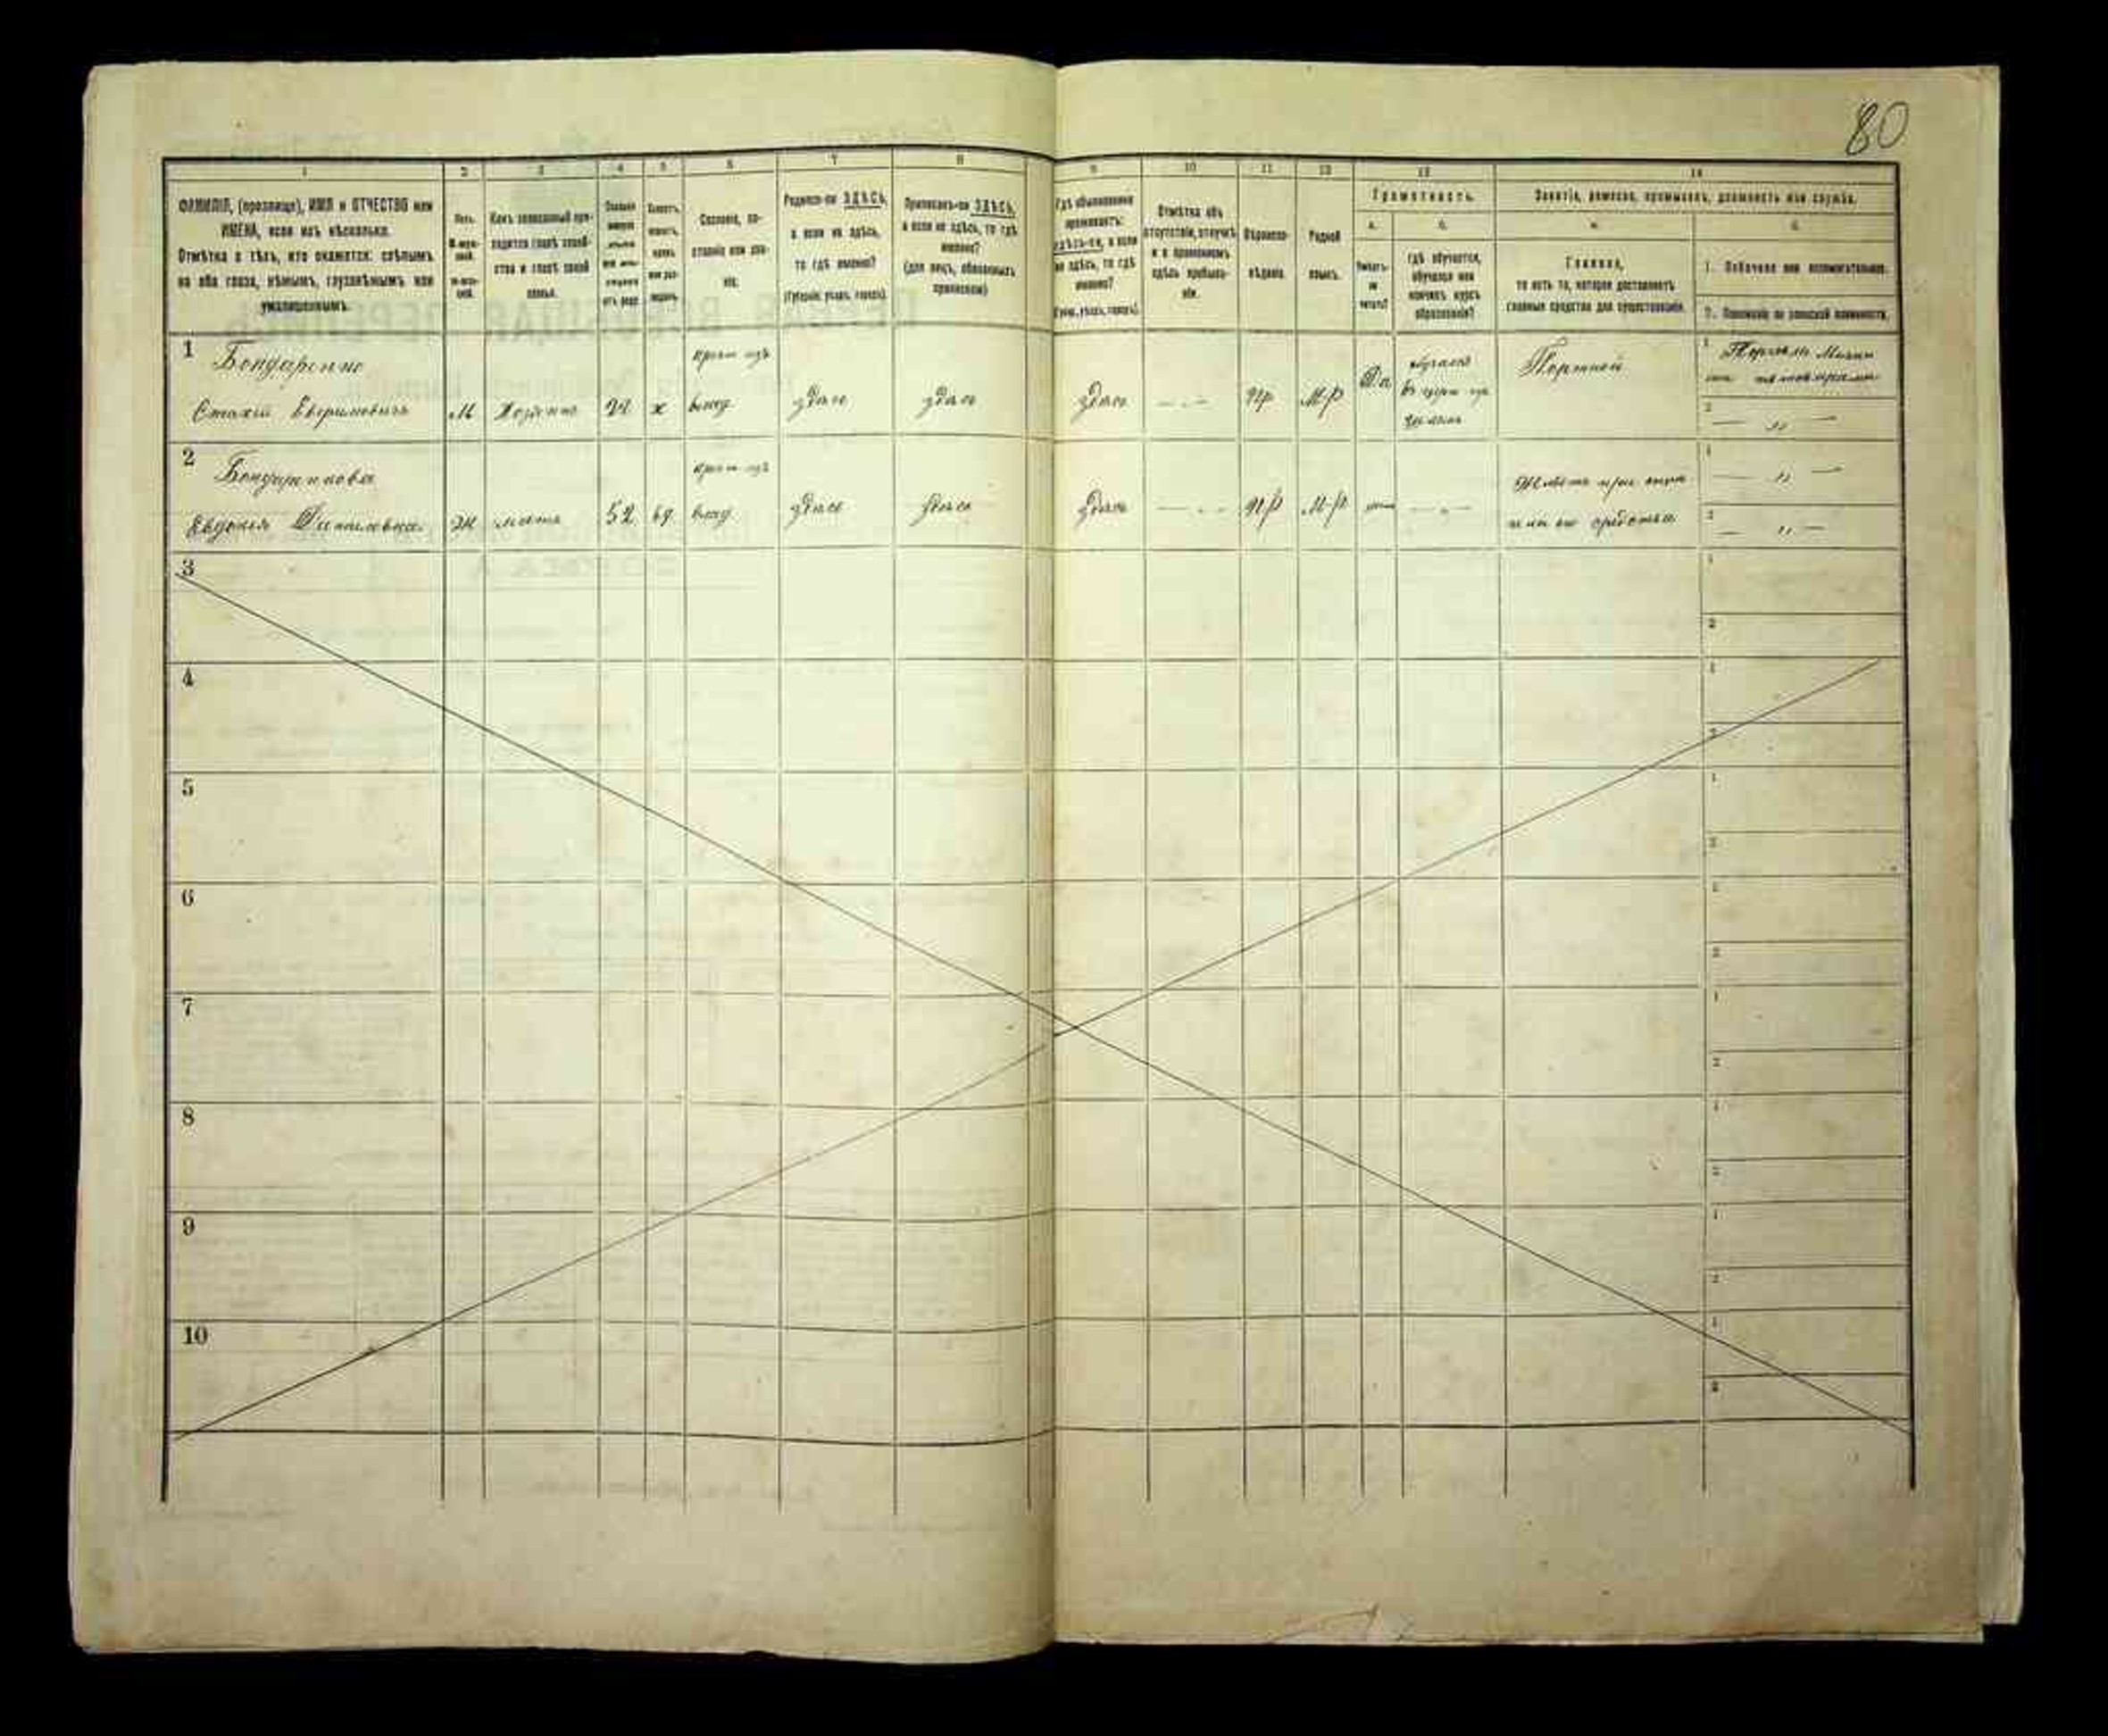 80
1
2
3
4
5
6
7
8
9
10
11
12
13
14
ФАМИЛІЯ, (прозвище), ИМЯ и ОТЧЕСТВО или
ИМЕНА, если ихъ нѣсколько.
Отмѣтка о тѣхъ, кто окажется: слѣпымъ
на оба глаза, нѣмымъ, глухонѣмымъ или
умалишеннымъ.
Полъ.
Какъ записанный при-
ходится главѣ хозяй-
ства и главѣ своей
семьи.
Сословіе, со-
стояніе или зва-
ніе.
Родился-ли ЗДѢСЬ,
а если не здѣсь,
то гдѣ именно?
(Губернія, уѣздъ, городъ).
Приписанъ-ли ЗДѢСЬ,
а если не здѣсь, то гдѣ
именно?
(для лицъ, обязанныхъ
припиской)
Гдѣ обыкновенно
проживаетъ:
здѣсь-ли, а если
не здѣсь, то гдѣ
именно?
(Губер., уѣздъ, городъ).
Отмѣтка объ
отсутствіи, отлучкѣ
и о временномъ
здѣсь пребыва-
ніи.
Вѣроиспо-
вѣданіе.
Родной
языкъ.
Грамотность.
а.
б.
Умѣетъ-
ли
читать?
гдѣ обучается,
обучался или
кончилъ курсъ
образованія?
Занятіе, ремесло, промыселъ, должность или служба.
а.
б.
Главное,
то есть то, которое доставляетъ
главныя средства для существованія.
1. Побочное или вспомогательное.
2. Положеніе по воинской повинности.
1
Бондаренко
крест. изъ
Стахій Ефримовичъ
М
Хозяинъ
22
х
влад.
здѣсь
здѣсь
здѣсь
— . —
Пр
М-р
Да
Портной
1
2
— „ —
2
Бондаренкова
крест. изъ
Евдокія Даниловна
Ж
мать
52
вд
влад.
здѣсь
здѣсь
здѣсь
— . —
Пр
М-р
нѣтъ
— „ —
Живетъ при сынѣ
и на его средства
1
— „ —
2
— „ —
3
1
2
4
1
2
5
1
2
6
1
2
7
1
2
8
1
2
9
1
2
10
1
2